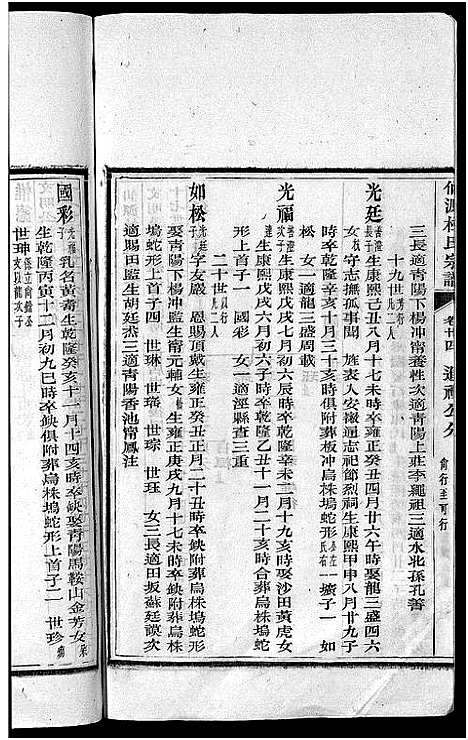 仙源林氏宗譜
卷廿四
三長適青陽下楊沖甯養性次適青陽上莊李繩祖三適水北孫孔善
十九世
光廷
長子
生康熙戊戌八月十七未時卒雍正癸丑四月廿六午時娶龍三盛四六
女守志孤事聞
旌表入安徽通志祀節烈祠生康熙甲申八月廿九子
時卒乾隆辛亥十月三十亥時俱附葬板沖烏株塢蛇形
一壙子一
如
松
女一適龍三盛周載
光福
次子
生康熙戊戌六月初六辰時卒乾隆辛未二月十九寅時娶沙田黃虎女
生康熙戊戌六月初六子時卒乾隆乙丑十一月二十亥時合葬烏株塢蛇
形上首子一
國彩
女一適涇縣查三重
二十世
二人
如松
光廷子
字友嚴
恩賜頂戴生雍正癸丑正月二十丑時卒缺附葬烏株塢蛇形
娶青陽下楊沖監生甯元輔女生雍正庚戌九月十七未時卒缺附葬烏株
塢蛇形上首子四
世琳
世琮
世珏
女三長適田坂蘇廷謨次
適賜田監生胡廷烋三適青陽香池甯鳳注
國彩
光福子
乳名黃壽生乾隆癸亥十一月十四亥時卒缺娶青陽馬鞍山金芳女
生乾隆丙寅十二月初九巳時卒缺俱附葬烏株塢蛇形上首子二
世珍
世珅